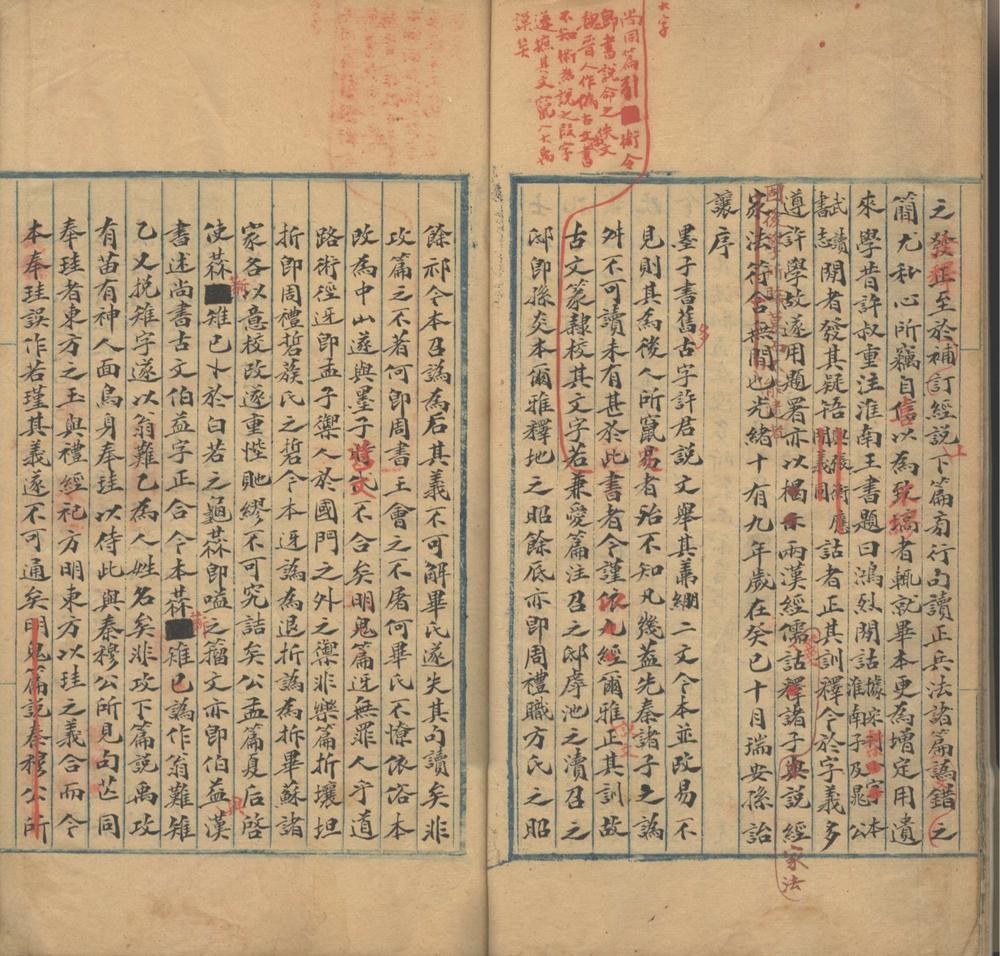 之發正至於補訂經說下篇旁行句讀正兵法諸篇譌錯之
簡尤私心所竊自信以為致塙者輒就畢本更為增定用遺
來學昔許叔重注淮南王書題曰鴻烈閒詁據宋本淮南子及鼂公
武讀書志閒者發其疑啎詁者正其訓釋今於字義多
遵許學故遂用題署亦以楬兩漢經儒詁釋諸子與說經
家法符合無閒也光緒十有九年歲在癸巳十月瑞安孫詒
讓序
墨子書舊多古字許君說文舉其羛繃二文今本並改易不
見則其為後人所竄易者殆不知凡幾蓋先秦諸子之譌
舛不可讀未有甚於此書者今謹依爾雅正其訓故
古文篆隸校其文字若兼愛篇注召之邸虖池之瀆召之
邸即孫炎本爾雅釋地之昭餘底亦即周禮職方氏之昭
餘祁今本召譌為后其義不可解畢氏遂失其句讀矣非
攻篇之不著何即周書王會之不屠何畢氏不憭依俗本
改為中山遂與墨子舊文不合矣明鬼篇迓無罪人乎道
路術徑迓即孟子禦人於國門之外之禦非樂篇折壤坦
折即周禮硩蔟氏之硩今本迓譌為退折譌為拆畢蘇諸
家各以意校改遂重悂貤繆不可究詰矣公孟篇夏后啓
使𦳣新雉已卜於白若之龜𦳣即嗌之籀文亦即伯益漢
書述尚書古文伯益字正合今本𦳣新雉已譌作翁難雉
乙又挩雉字遂以翁難乙為人姓名矣非攻下篇說禹攻
有苗有神人面鳥身奉珪以侍此與秦穆公所見句芒同
奉珪者東方之玉與禮經祀方明東方以珪之義合而今
本奉珪誤作若瑾其義遂不可通矣明鬼篇說秦穆公所
大字
尚同篇引術令
即書說命之佚文
魏晉人作偽古文書
不知術為說之叚字
遂摭其文竄入大禹
謨矣
家法